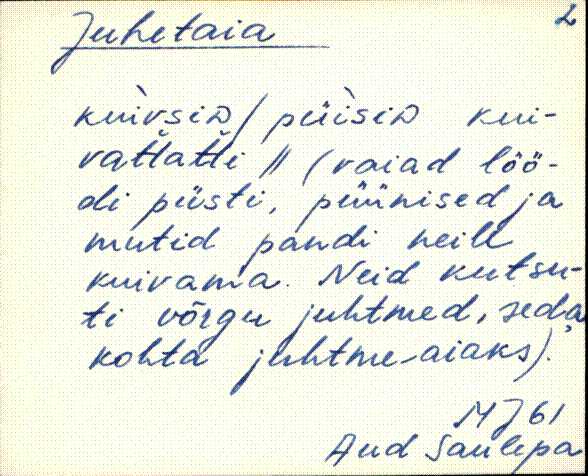 2
Juhetaia
kùivsiɒ / püìsiɒ kui-
vattatti // (vaiad löö-
di püsti, püünised ja
mutid pandi neill
kuivama. Neid kutsu-
ti võrgu juhtmed, seda
kohta juhtme-aiaks).
MJ 61
Aud Saulepa